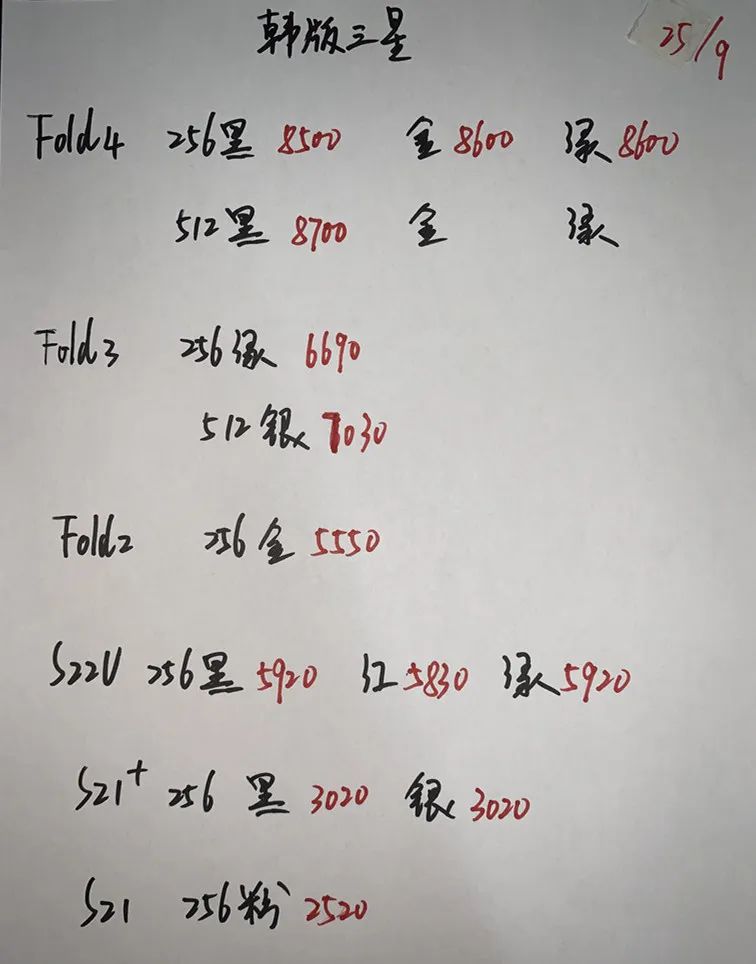 韩版三星
25/9
Fold4 256黑 8500 金 8600 绿 8600
512黑 8700 金 绿
Fold3 256绿 6690
512银 7030
Fold2 256金 5550
S22U 256黑 5920 红 5830 绿 5920
S21+ 256 黑 3020 银 3020
S21 256粉 2520